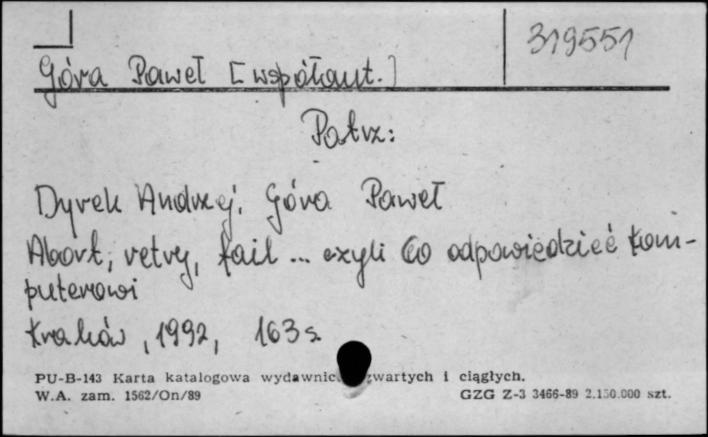 319551
Góra Paweł [współaut.]
Patrz:
Dyrek Andrzej, Góra Paweł
Abort, retry, fail ... czyli Co odpowiedzieć kom-
puterowi
Kraków, 1992, 163 s.
PU-B-143 Karta katalogowa wydawnic zwartych i ciągłych.
W.A. zam. 1562/On/89 GZG Z-3 3466-89 2.150.000 szt.